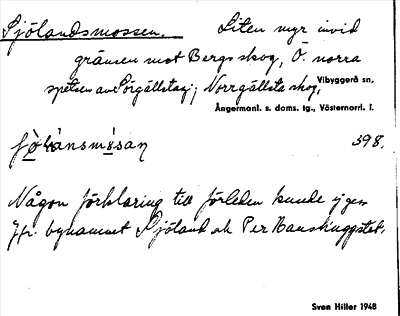 Sjölandsmossen. Liten myr invid
gränsen mot Bergs skog, Ö. norra
spetsen av Sörgällstag; Norrgällsta skog, Vibyggerå sn,
Ångermanl. s. doms. tg., Västernorrl. l.
398.
Någon förklaring till förleden kunde ej ges.
Jfr. bynamnet Sjöland och Per
Sven Hiller 1948